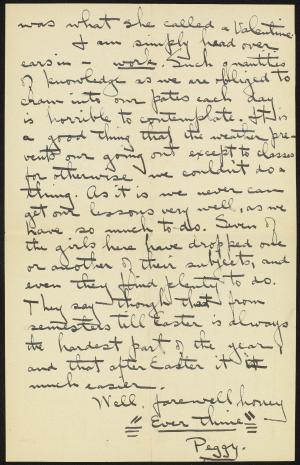 was what she called a Valentine.
I am simply head over
ears in - work. Such quantities
of knowledge as we are obliged to
cram into our pates each day
is horrible to contemplate. It is
a good thing that the weather pre-
vents our going out except to classes
for otherwise we couldn't do a
thing. As it is we never can
get our lessons very well, as we
have so much to do. Seven of
the girls here have dropped one
or another of their subjects, and
even they find plenty to do.
They say though that from
semesters till Easter is always
the hardest part of the year,
and that after Easter it is
much easier.
Well, farewell honey
"Ever thine"
Peggy.